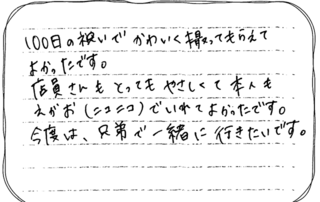 100日の祝いで かわいく撮ってもらえて
よかったです。
店員さんも とっても やさしくて 本人も
えがお(ニコニコ)で いれて よかったです。
今度は、兄弟で一緒に 行きたいです。